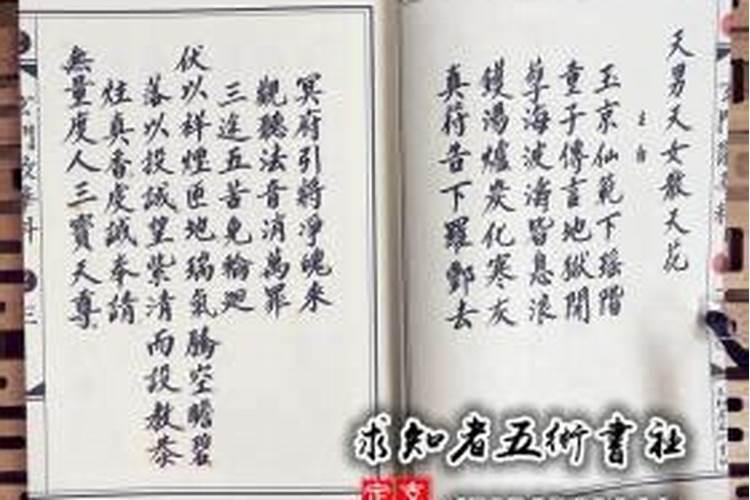 天男天女散天花
玉京仙範下瑶階
童子傳言地獄開
孽海波濤皆息浪
鑊湯爐炭化寒灰
真符告下羅酆去
冥府引將淨魄來
觀聽法音消萬罪
三途五苦免輪迴
伏以祥煙匝地瑞氣騰空瞻碧
落以投誠望紫清而設教恭
炷真香虔誠奉請
無量度人三寶天尊
求知者五術書社